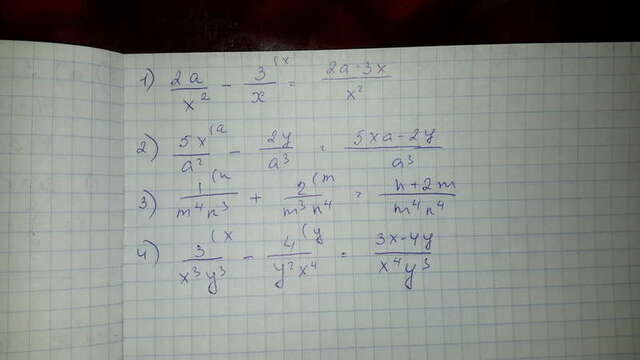 1) 2a/x² - 3(x/x = 2a-3x/x²
2) 5x(a/a² - 2y/a³ = 5xa-2y/a³
3) 1(n/m⁴n³ + 2(m/m³n⁴ = n+2m/m⁴n⁴
4) 3(x/x³y³ - 4(y/y²x⁴ = 3x-4y/x⁴y³